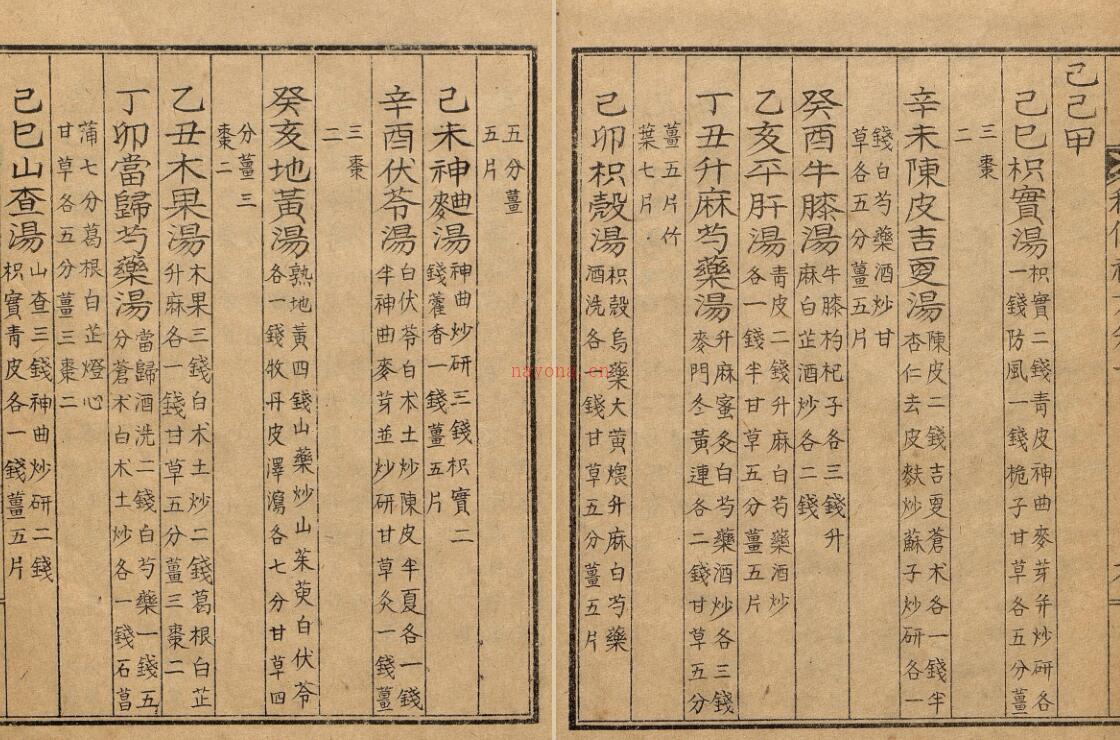 己己甲
己巳枳實湯
枳實二錢青皮神曲麥芽并炒研各
一錢防風一錢桅子甘草各五分薑
三棗
二
辛未陳皮吉更湯
陳皮二錢吉更蒼术各一錢半
杏仁去皮麩炒蘇子炒研各一
錢白芍藥酒炒甘
草各五分薑五片
癸酉牛膝湯
牛膝杓杞子各三錢升
麻白芷酒炒各二錢
乙亥平肝湯
青皮二錢升麻白芍藥酒炒
各一錢半甘草五分薑五片
丁丑升麻芍藥湯
升麻蜜灸白芍藥酒炒各三錢
麥門冬黃連各二錢甘草五分
薑五片竹
葉七片
己卯枳殼湯
枳殼烏藥大黄煨升麻白芍藥
酒洗各一錢甘草五分薑五片
五分薑
五片
己未神麯湯
神曲炒研三錢枳實二
錢藿香一錢薑五片
辛酉伏苓湯
白伏苓白术土炒陳皮半夏各一錢
半神曲麥芽並炒研甘草灸一錢薑
三棗
二
癸亥地黃湯
熟地黃四錢山藥炒山茱萸白伏苓
各一錢牧丹皮澤瀉各七分甘草四
分薑三
棗二
乙丑木果湯
木果三錢白术土炒二錢葛根白芷
升麻各一錢甘草五分薑三棗二
丁卯當歸芍藥湯
當歸酒洗二錢白芍藥一錢五
分蒼术白术土炒各一錢石菖
蒲七分葛根白芷燈心
甘草各五分薑三棗二
己巳山查湯
山查三錢神曲炒研二錢
枳實青皮各一錢薑五片
nayona.cn